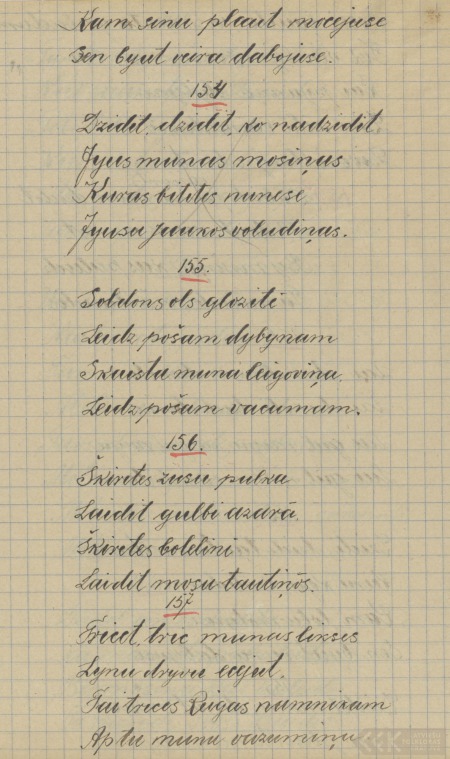 Kam sinu plaut mocejuse
Sen byut veira dabojuse.
154
Dzidit, dzidit, ko nadzidit,
Jyus munas mosiņas
Kuras bitites nunese
Jyusu jaukos voludiņas.
155.
Soldons ols gloziti
Leidz pošam dybynam
Skaista muna leigoviņa
Leidz pošam vacumam.
156.
Škirites zusu pulka
Laidit gulbi azarā.
Škirites bolelini
Laidit mosu tautiņōs.
157
Tricet, tric munas
Lynu dryvu ecejut.
Tai trices Reigas numnikam
Ap tu munu vazumiņu